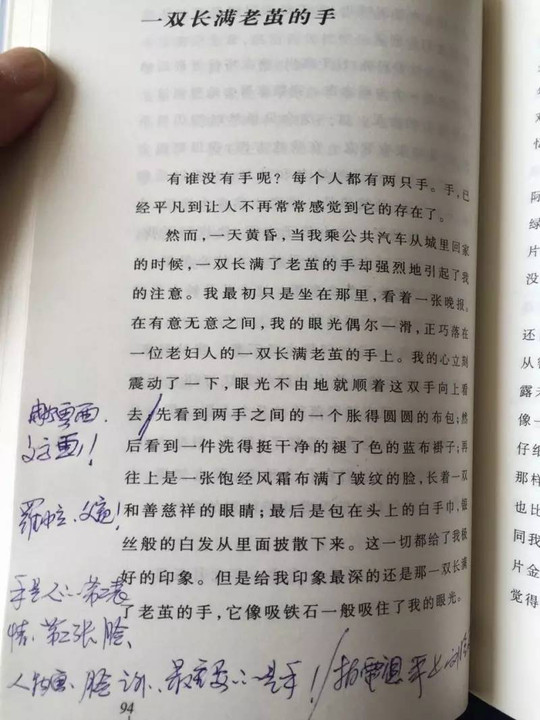 一双长满老茧的手
有谁没有手呢？每个人都有两只手。手，已
经平凡到让人不再常常感觉到它的存在了。
然而，一天黄昏，当我乘公共汽车从城里回家
的时候，一双长满了老茧的手却强烈地引起了我
的注意。我最初只是坐在那里，看着一张晚报，
在有意无意之间，我的眼光偶尔一滑，正巧落在
一位老妇人的一双长满老茧的手上。我的心立刻
震动了一下，眼光不由地就顺着这双手向上看
去，先看到两手之间的一个胀得圆圆的布包；然
后看到一件洗得挺干净的褪了色的蓝布褂子；再
往上是一张饱经风霜布满了皱纹的脸，长着一双
和善慈祥的眼睛；最后是包在头上的白手巾，银
丝般的白发从里面披散下来。这一切都给了我极
好的印象。但是给我印象最深的还是那一双长满
了老茧的手，它像吸铁石一般吸住了我的眼光。
罗中立、父亲！
手是人的第二表
情、第二张脸、
人物画、脸之外、最重要的是手！
94
还
从
露
像一
仔细
那样
也比
同我
片金
觉得